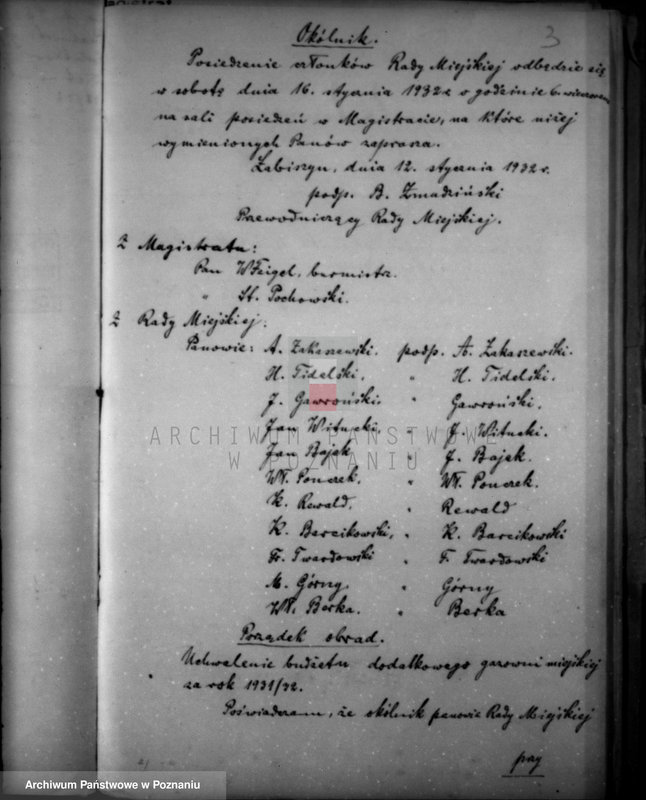 3
Okólnik.
Posiedzenie członków Rady Miejskiej odbędzie się
w sobotę dnia 16. stycznia 1932 r. o godzinie 6. wieczorem
na sali posiedzeń w Magistracie, na które niżej
wymienionych Panów zaprasza.
Łabiszyn, dnia 12. stycznia 1932 r.
podp. B. Żmudziński
Przewodniczący Rady Miejskiej.
Z Magistratu:
Pan W. Feigel, burmistrz.
" St. Pochowski.
Z Rady Miejskiej:
Panowie: A. Zakaszewski. podp. A. Zakaszewski.
H. Tidelski, " H. Tidelski.
J. Gawroński. " Gawroński.
Jan Witucki. " J. Witucki.
Jan Bajek " J. Bajek.
Wł. Ponczek. " Wł. Ponczek.
K. Rewald. " Rewald
K. Barcikowski, " K. Barcikowski
Fr. Twardowski " F. Twardowski
M. Górny. " Górny
Wł. Berka. " Berka
Porządek obrad.
Uchwalenie budżetu dodatkowego gazowni miejskiej
za rok 1931/32.
Poświadczam, że okólnik panowie Rady Miejskiej
pray
ARCHIWUM PAŃSTWOWE
W POZNANIU
Archiwum Państwowe w Poznaniu